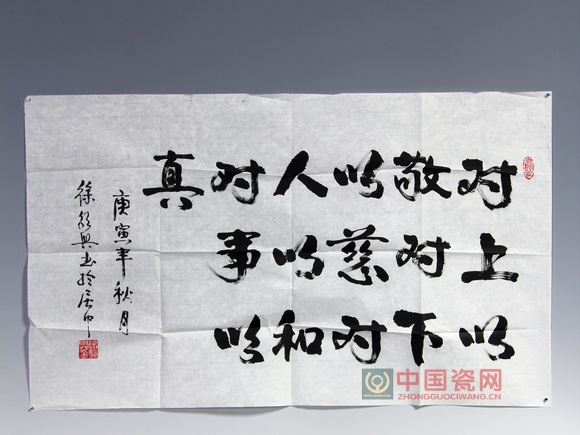 对上以
敬对下
以慈对
人以和
对事以
真
庚寅年秋月
徐
中国瓷网
ZHONGGUOCIWANG.CN